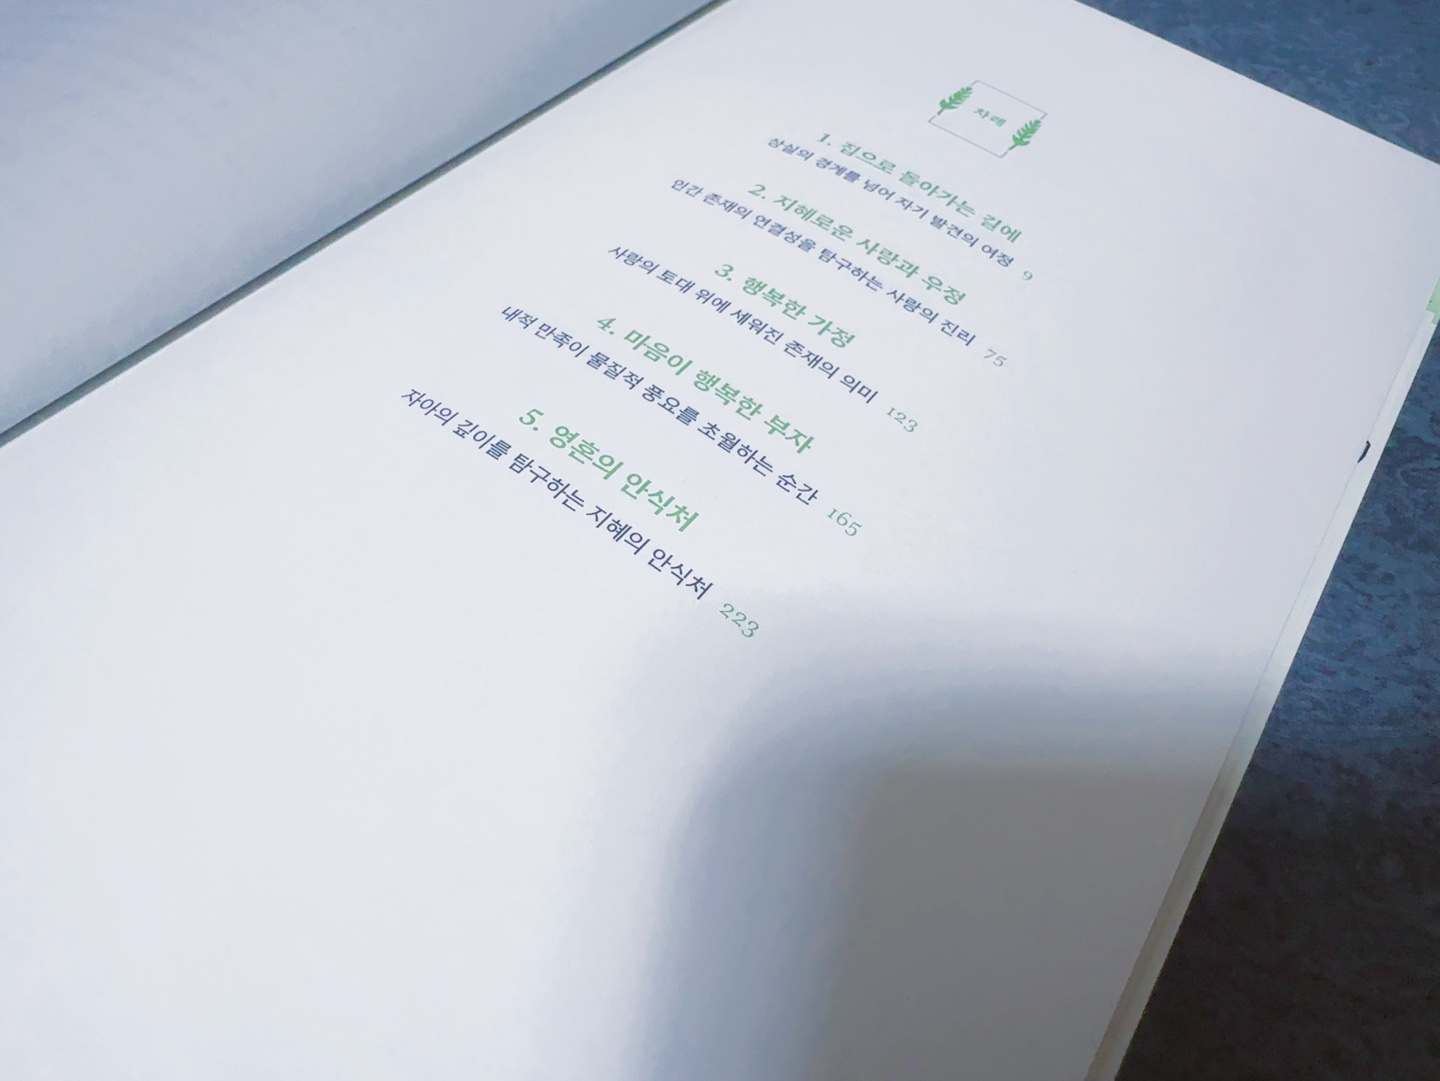 차례
1. 집으로 돌아가는 길에
상실의 경계를 넘어 자기 발견의 여정 9
2. 지혜로운 사랑과 우정
인간 존재의 연결성을 탐구하는 사랑의 진리 75
3. 행복한 가정
사랑의 토대 위에 세워진 존재의 의미 123
4. 마음이 행복한 부자
내적 만족이 물질적 풍요를 초월하는 순간 165
5. 영혼의 안식처
자아의 깊이를 탐구하는 지혜의 안식처 223